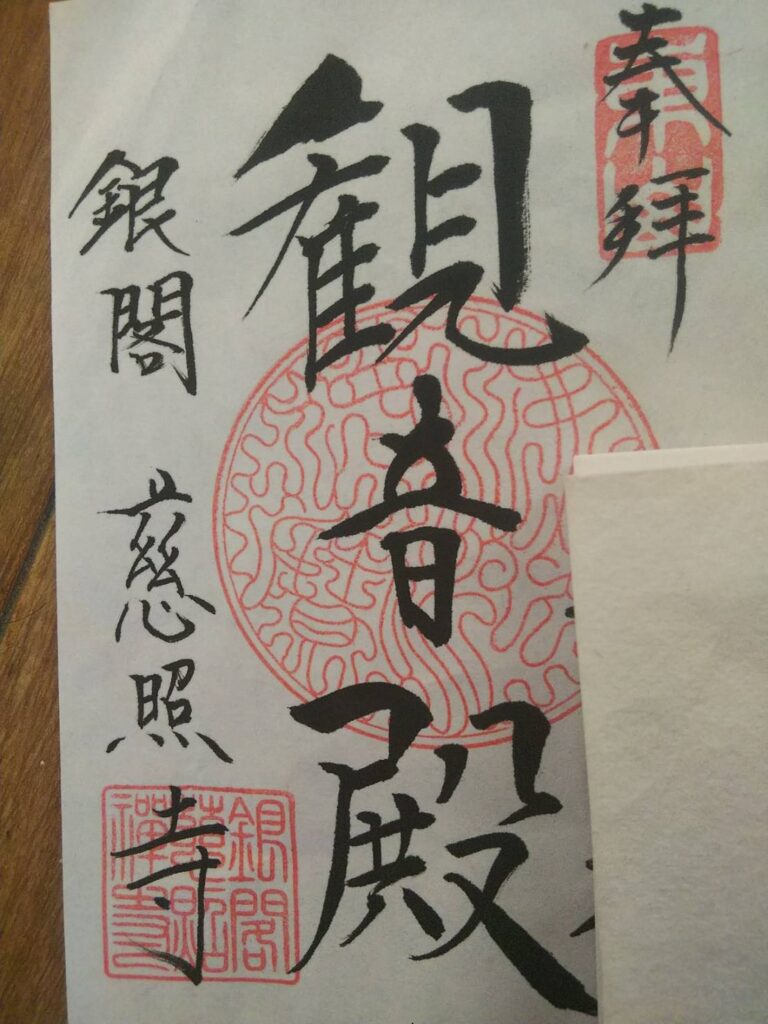 奉拝
東山
観音殿
銀閣 慈照寺
銀閣
慈照
禅寺